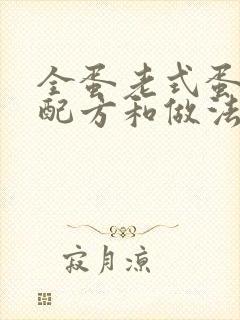 全蛋老式蛋
配方和做法
寂月凉